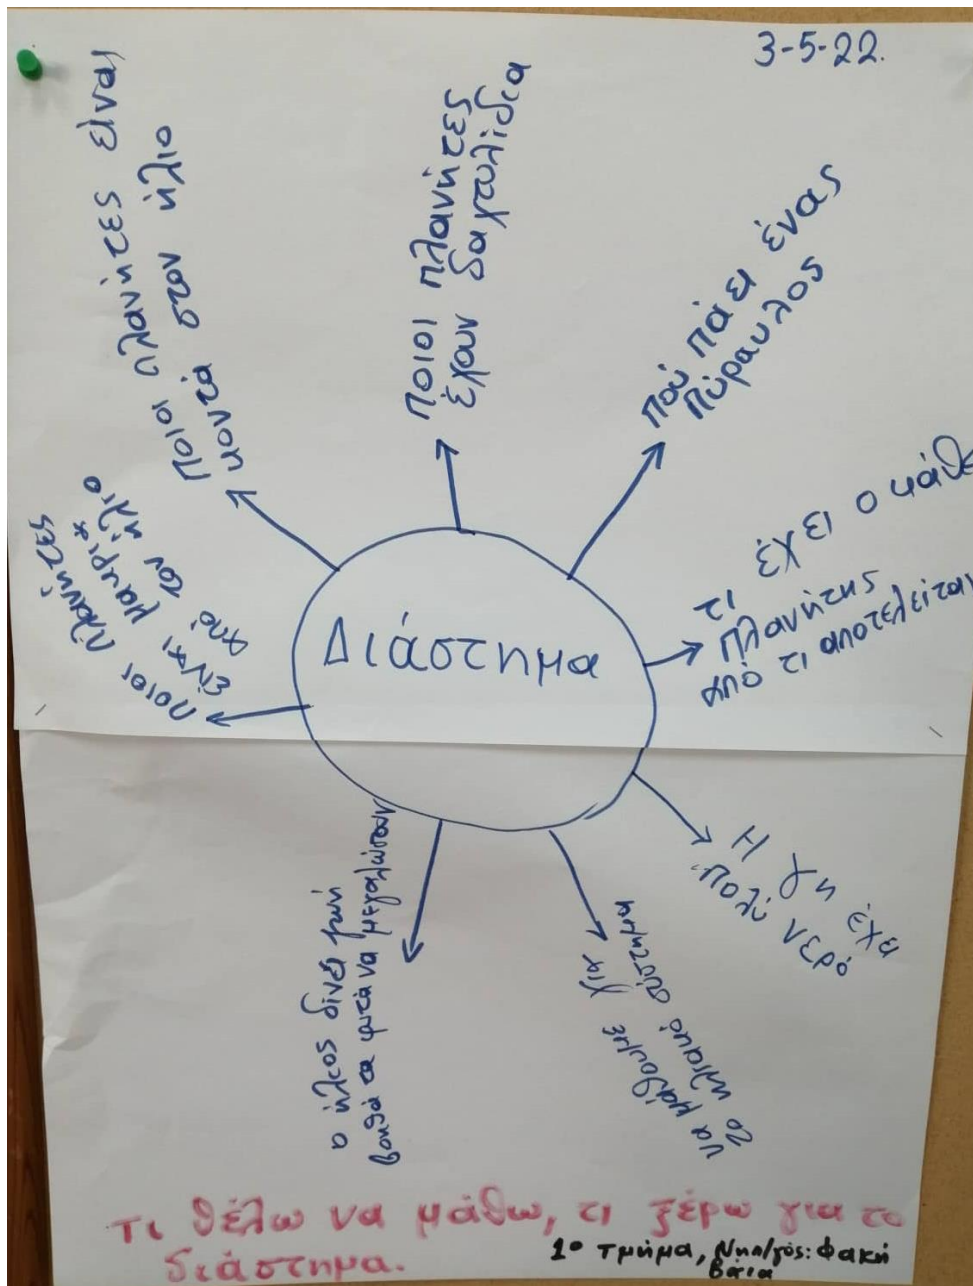 3-5-22.
Ποιοι πλανήτες είναι
κοντά στον ήλιο
ποιοι πλανήτες
έχουν δαχτυλίδια
πού πάει ένας
πύραυλος
τι έχει ο κάθε
πλανήτης
από τι αποτελείται
Η γη έχει
πολύ νερό
να μάθουμε για
το ηλιακό σύστημα
ο ήλιος δίνει ζωή
βοηθά τα φυτά να μεγαλώσουν
ποιοι πλανήτες
είναι μακριά
από τον ήλιο
Διάστημα
Τι θέλω να μάθω, τι ξέρω για το
διάστημα.
1ο τμήμα, Νηπ/γός: Φακή
Βάια